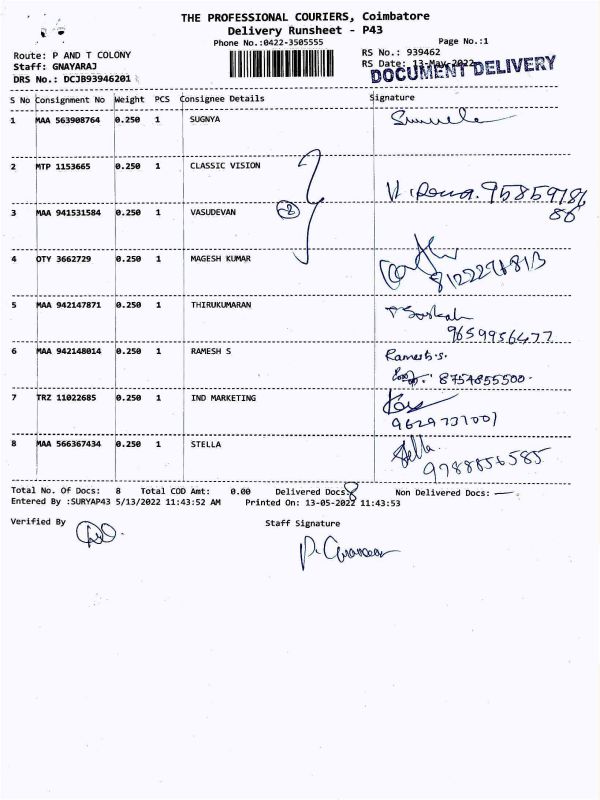 THE PROFESSIONAL COURIERS, Coimbatore
Delivery Runsheet - P43
Phone No.:0422-3505555 Page No.:1
Route: P AND T COLONY RS No.: 939462
Staff: GNAYARAJ RS Date: 13-May-2022
DOCUMENT DELIVERY
DRS No.: DCJB93946201
S No Consignment No Weight PCS Consignee Details Signature
1 MAA 563908764 0.250 1 SUGNYA
2 MTP 1153665 0.250 1 CLASSIC VISION
3 MAA 941531584 0.250 1 VASUDEVAN
4 OTY 3662729 0.250 1 MAGESH KUMAR
5 MAA 942147871 0.250 1 THIRUKUMARAN
9659956477
6 MAA 942148014 0.250 1 RAMESH S Ramesh.s.
8754855500
7 TRZ 11022685 0.250 1 IND MARKETING
8 MAA 566367434 0.250 1 STELLA Stella
9788856585
Total No. Of Docs: 8 Total COD Amt: 0.00 Delivered Docs: 8 Non Delivered Docs: —
Entered By :SURYAP43 5/13/2022 11:43:52 AM Printed On: 13-05-2022 11:43:53
Verified By Staff Signature